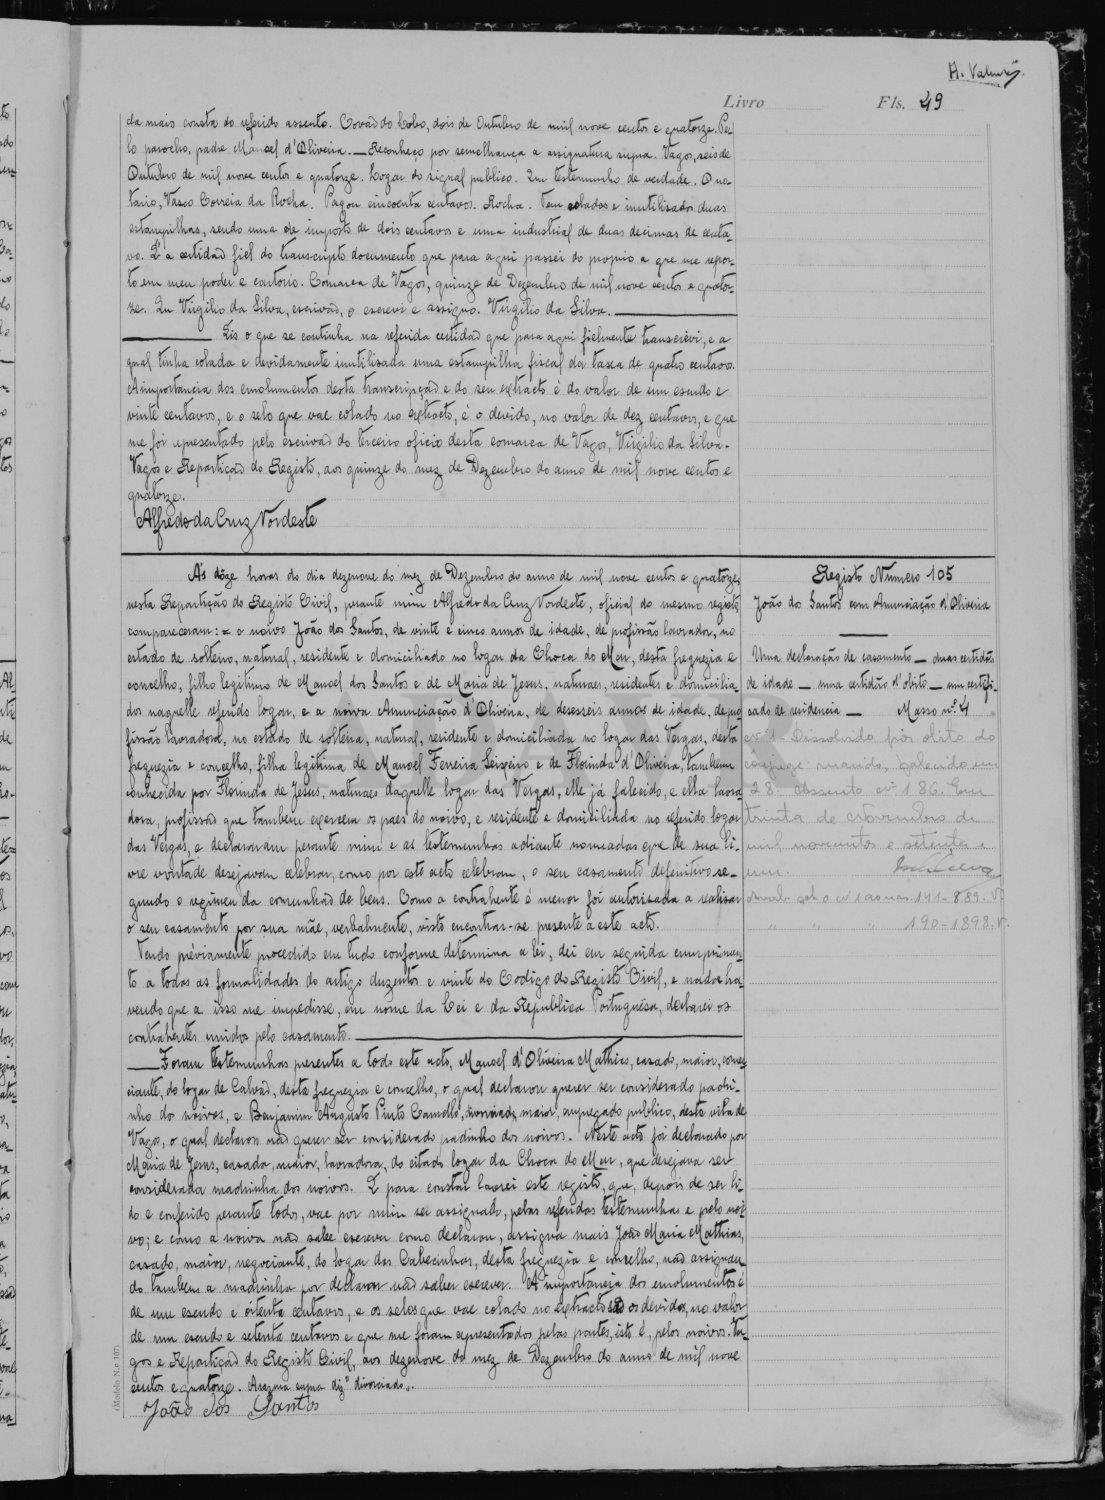 A. Valente
Livro Fls. 49
da mais consta do referido assento. Covão do Lobo, dois de Outubro de mil nove centos e quatorze. Pe-
lo parocho, padre Manoel d'Oliveira. — Reconheço por semelhança a assignatura supra. Vagos, seis de
Outubro de mil nove centos e quatorze. Logar do signal publico. Em testemunho de verdade. O no-
tario, Vasco Correia da Rocha. Pagou cincoenta centavos. Rocha. Tem colados e inutilisados duas
estampilhas, sendo uma de imposto de dois centavos e uma industrial de duas decimas de centa-
vo. É a certidão fiel do transcripto documento que para aqui passei do proprio a que me repor-
to em meu poder e cartorio. Comarca de Vagos, quinze de Dezembro de mil nove centos e quator-
ze. Eu Virgilio da Silva, escrivão, o escrevi e assigno. Virgilio da Silva.
Eis o que se continha na referida certidão que para aqui fielmente transcrevi, e a
qual tinha colada e devidamente inutilisada uma estampilha fiscal da taxa de quatro centavos.
A importancia dos emolumentos desta transcripção e do seu extracto é do valor de um escudo e
vinte centavos, e o selo que vae colado no extracto, é o devido, no valor de dez centavos, e que
me foi apresentado pelo escrivão do terceiro oficio desta comarca de Vagos, Virgilio da Silva.
Vagos e Repartição do Registo, aos quinze do mez de Dezembro do anno de mil nove centos e
quatorze.
Alfredo da Cruz Nordeste
Ás dôze horas do dia dezenove do mez de Dezembro do anno de mil nove centos e quatorze,
nesta Repartição do Registo Civil, perante mim Alfredo da Cruz Nordeste, oficial do mesmo registo
compareceram: = o noivo João dos Santos, de vinte e cinco annos de idade, de profissão lavrador, no
estado de solteiro, natural, residente e domiciliado no logar da Choca do Mar, desta freguezia e
concelho, filho legitimo de Manoel dos Santos e de Maria de Jesus, naturaes, residentes e domicilia-
dos naquelle referido logar, e a noiva Anunciação d'Oliveira, de desesseis annos de idade, de pro-
fissão lavradora, no estado de solteira, natural, residente e domiciliada no logar das Vergas, desta
freguezia e concelho, filha legitima de Manoel Ferreira Seixeiro e de Florinda d'Oliveira, tambem
conhecida por Florinda de Jesus, naturaes daquelle logar das Vergas, elle já falecido, e ella lavra-
dora, profissão que tambem exercem os paes do noivo, e residente e domiciliada no referido logar
das Vergas, e declararam perante mim e as testemunhas adiante nomeadas que de sua li-
vre vontade desejavam celebrar, como por este acto celebram, o seu casamento definitivo se-
gundo o regimen da comunhão de bens. Como a contrahente é menor foi autorisada a realisar
o seu casamento por sua mãe, verbalmente, visto encontrar-se presente a este acto.
Tendo préviamente procedido em tudo conforme determina a lei, dei em seguida cumprimen-
to a todas as formalidades do artigo duzentos e vinte do Codigo do Registo Civil, e nada ha-
vendo que a isso me impedisse, em nome da Lei e da Republica Portuguêsa, declarei os
contrahentes unidos pelo casamento.
Foram testemunhas presentes a todo este acto, Manoel d'Oliveira Mathias, casado, maior, comer-
ciante, do logar de Calvão, desta freguezia e concelho, o qual declarou querer ser considerado padri-
nho do noivos, e Benjamim Augusto Pinto Camello, maior, empregado publico, desta vila de
Vagos, o qual declarou não querer ser considerado padinho dos noivos. Neste acto foi declarado por
Maria de Jesus, casada, maior, lavradora, do citado logar da Choca do Mar, que desejava ser
considerada madrinha dos noivos. E para constar lavrei este registo, que, depois de ser li-
do e conferido perante todos, vae por mim ser assignado, pelas referidas testemunhas e pelo noi-
vo; e como a noiva não sabe escrever como declarou, assigna mais João Maria Mathias,
casado, maior, negociante, do logar das Cabecinhas, desta freguezia e concelho, não assignan-
do tambem a madrinha por declarar não saber escrever. A importancia dos emolumentos é
de um escudo e oitenta centavos, e os selos que vae colado no extracto são os devidos, no valor
de um escudo e setenta centavos e que me foram apresentados pelas partes, isto é, pelos noivos. Va-
gos e Repartição do Registo Civil, aos dezenove do mez de Dezembro do anno de mil nove
centos e quatorze. A rasura supra diz "divorciado".
João dos Santos
(Modelo N.º 107)
Registo Numero 105
João dos Santos com Anunciação d'Oliveira
Uma declaração de casamento — duas certidões
de idade — uma certidão d'obito — um certifi-
cado de residencia — Masso nº 4
nº 1 - Dissolvido por obito do
conjuge marido, falecido em
28. Assento nº 186. Em
trinta de Novembro de
mil novecentos e setenta e
um.